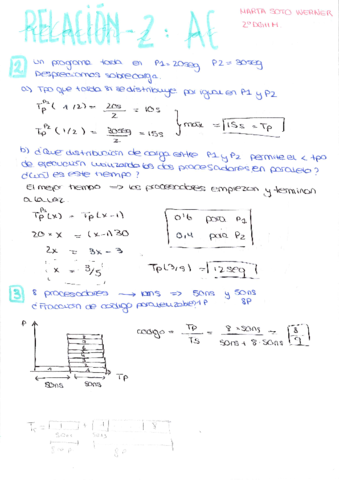 RELACIÓN-2: AC
MARTA SOTO WERNER
2º DGIIM
2 un programa tarda en P1=20seg P2=30seg
Despreciamos sobrecarga.
a) Tpo que tarda si se distribuye por igual en P1 y P2
Tp^P1 (1/2) = 20s/2 = 10s
Tp^P2 (1/2) = 30seg/2 = 15s
máx = 15s = Tp
b) ¿Que distribución de carga entre P1 y P2 permite el < tpo
de ejecución utilizando los dos procesadores en paralelo?
¿Cuál es este tiempo?
El mejor tiempo → los procesadores empiezan y terminan
a la vez.
Tp(x) = Tp(x-1)
20·x = (x-1)30
2x = 3x - 3
x = 3/5
0'6 para P1
0,4 para P2
Tp(3/5) = 12seg
3 8 procesadores → 50ns y 50ns
8P
¿Fracción de código paralelizable?
P
50ns 50ns Tp
código = Tp/Ts = 8·50ns / 50ns + 8·50ns = 8/9